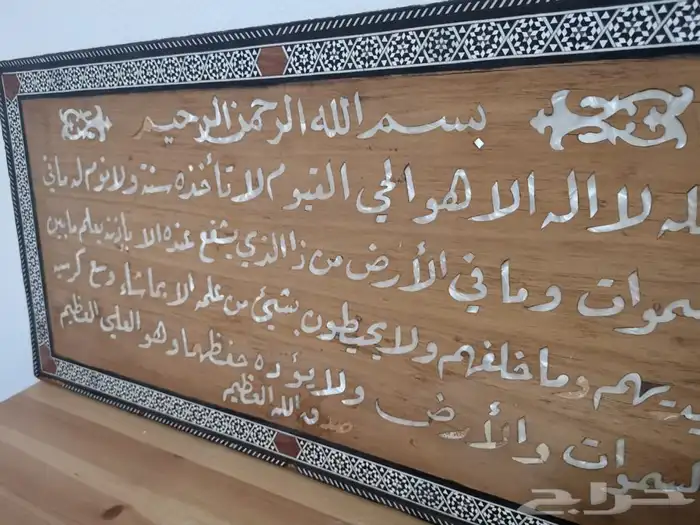 بسم الله الرحمن الرحيم
لله لا اله الا هو الحي القيوم لا تأخذه سنة ولا نوم له ما في
سموات وما في الأرض من ذا الذي يشفع عنده الا بإذنه يعلم ما بين
يديهم وما خلفهم ولا يحيطون بشيئ من علمه الا بما شاء وسع كرسيه
السموات والأرض ولا يؤده حفظهما وهو العلي العظيم
صدق الله العظيم
حراج